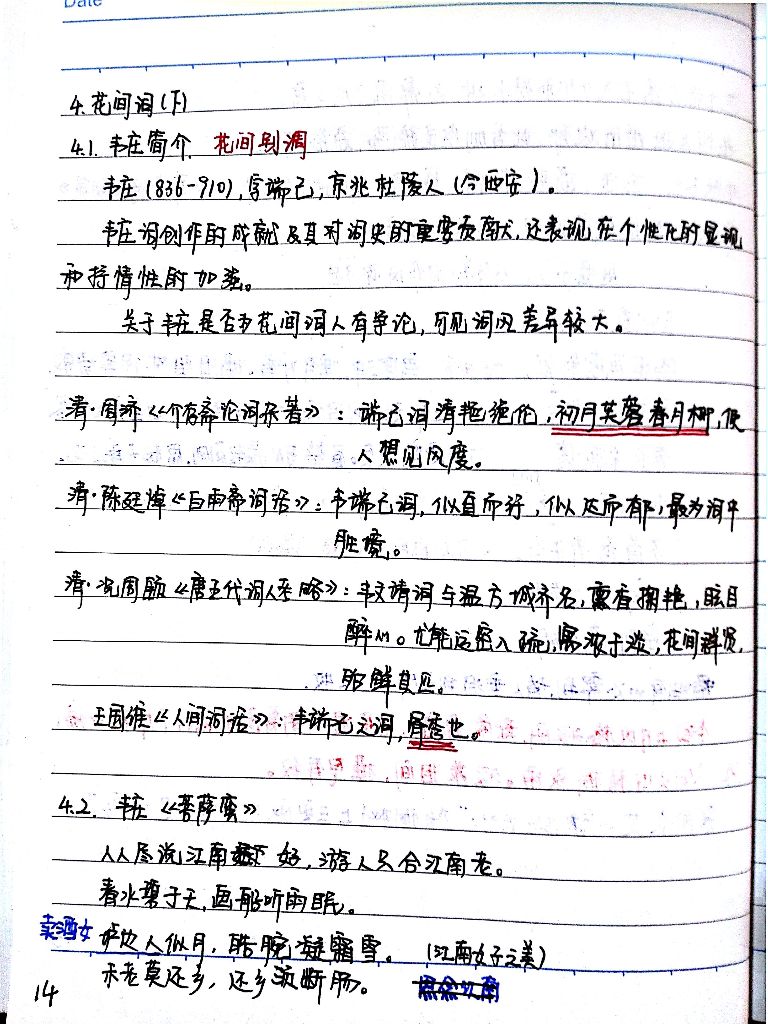 Date
4.花间词(下)
4.1. 韦庄简介 花间别调
韦庄(836-910),字端己,京兆杜陵人(今西安)。
韦庄词创作的成就及其对词史的重要贡献,还表现在个性化的显现
和抒情性的加强。
关于韦庄是否为花间词人有争论,可见词风差异较大。
清·周济《介存斋论词杂著》:端己词清艳绝伦,初月芙蓉春月柳,使
人想见风度。
清·陈廷焯《白雨斋词话》:韦端己词,似直而纡,似达而郁,最为词中
胜境。
清·况周颐《唐五代词人考略》:韦文靖词与温方城齐名,熏香掬艳,眩目
醉心。尤能运密入疏,寓浓于淡,花间群贤,
殆鲜其匹。
王国维《人间词话》:韦端己之词,骨秀也。
4.2. 韦庄《菩萨蛮》
人人尽说江南好,游人只合江南老。
春水碧于天,画船听雨眠。
卖酒女 垆边人似月,皓腕凝霜雪。 (江南女子之美)
未老莫还乡,还乡须断肠。
14